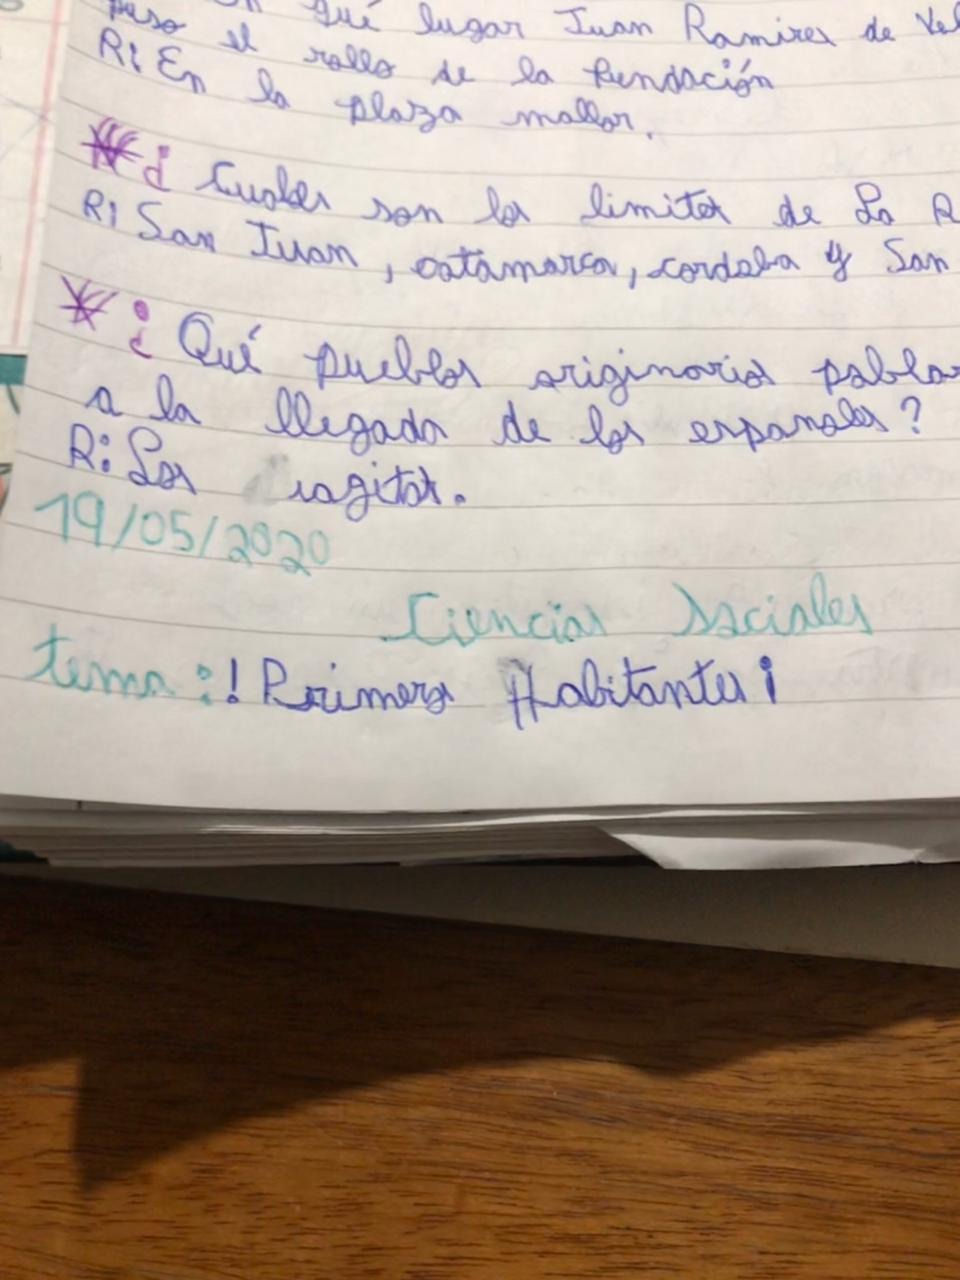 qué lugar Juan Ramires de Vel
puso el rollo de la fundación
R: En la plaza mallor.
¿Cuales son los limites de La R
R: San Juan, catamarca, cordoba y San
¿Qué pueblos originarios poblar
a la llegada de los espanoles?
R: Los sagitas.
19/05/2020
Ciencias Sociales
tema: ! Primeros Habitantes ¡